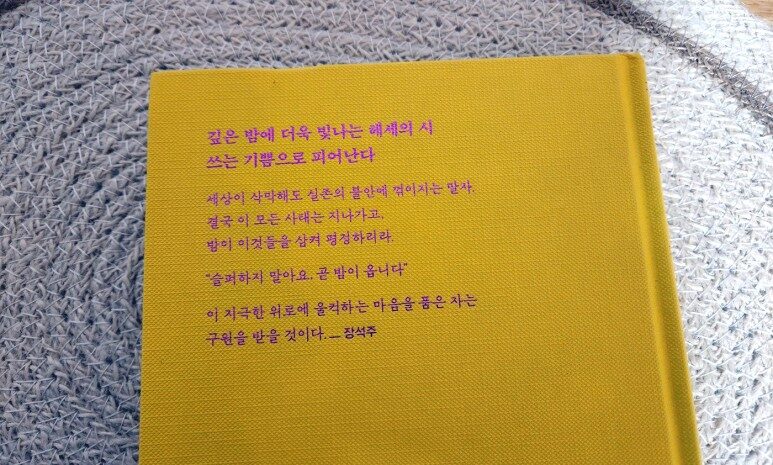 깊은 밤에 더욱 빛나는 헤세의 시
쓰는 기쁨으로 피어난다
세상이 삭막해도 실존의 불안에 꺾이지는 말자.
결국 이 모든 사태는 지나가고,
밤이 이것들을 삼켜 평정하리라.
"슬퍼하지 말아요, 곧 밤이 옵니다"
이 지극한 위로에 울컥하는 마음을 품은 자는
구원을 받을 것이다. — 장석주